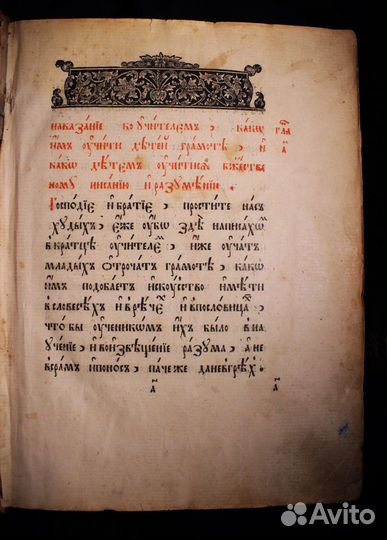 наказанїе ко ᲂу҆чи́телемъ, ка́кѡ гла̀
и҆́мъ ᲂу҆чи́ти дѣте́й гра́мотѣ, и҆ а҃
ка́кѡ дѣ́темъ ᲂу҆чи́тисѧ бж҃е́ства
ному писа́нїю и҆ разꙋмѣ́нїю.
Госпѻді́е и҆ бра́тїе, прости́те на́съ
хꙋды́хъ, є҆́же ᲂу҆́бѡ здѣ̀ написа́хѡм
вкра́тцѣ ᲂу҆чи́телем, и҆́же ᲂу҆ча́тъ
млады́хъ ѻ҆́трочатъ гра́мотѣ, ка́кѡ
и҆́мъ подоба́етъ и҆скꙋ́сство и҆мѣ́ти
всловесѣ́хъ и҆ врѣ́чех и҆ впосло́вицах,
что́бы ᲂу҆ченикѡ́мъ и҆́хъ бы́ло в на
ᲂу҆че́нїе, и҆ вои҆звѣще́нїе ра́зꙋма, а҆ не
всра́мъ и҆ поно́съ, па́че же да не вгрѣ́х.
а҃ а҃
Avito